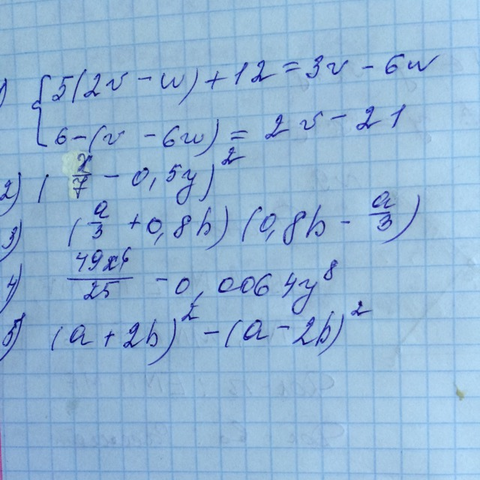 1) { 5(2v - w) + 12 = 3v - 6w
6 - (v - 6w) = 2v - 21
2) (x/7 - 0,5y)²
3) (a/3 + 0,8b) (0,8b - a/3)
4) 49x⁶/25 - 0,0064y⁸
5) (a + 2b)² - (a - 2b)²